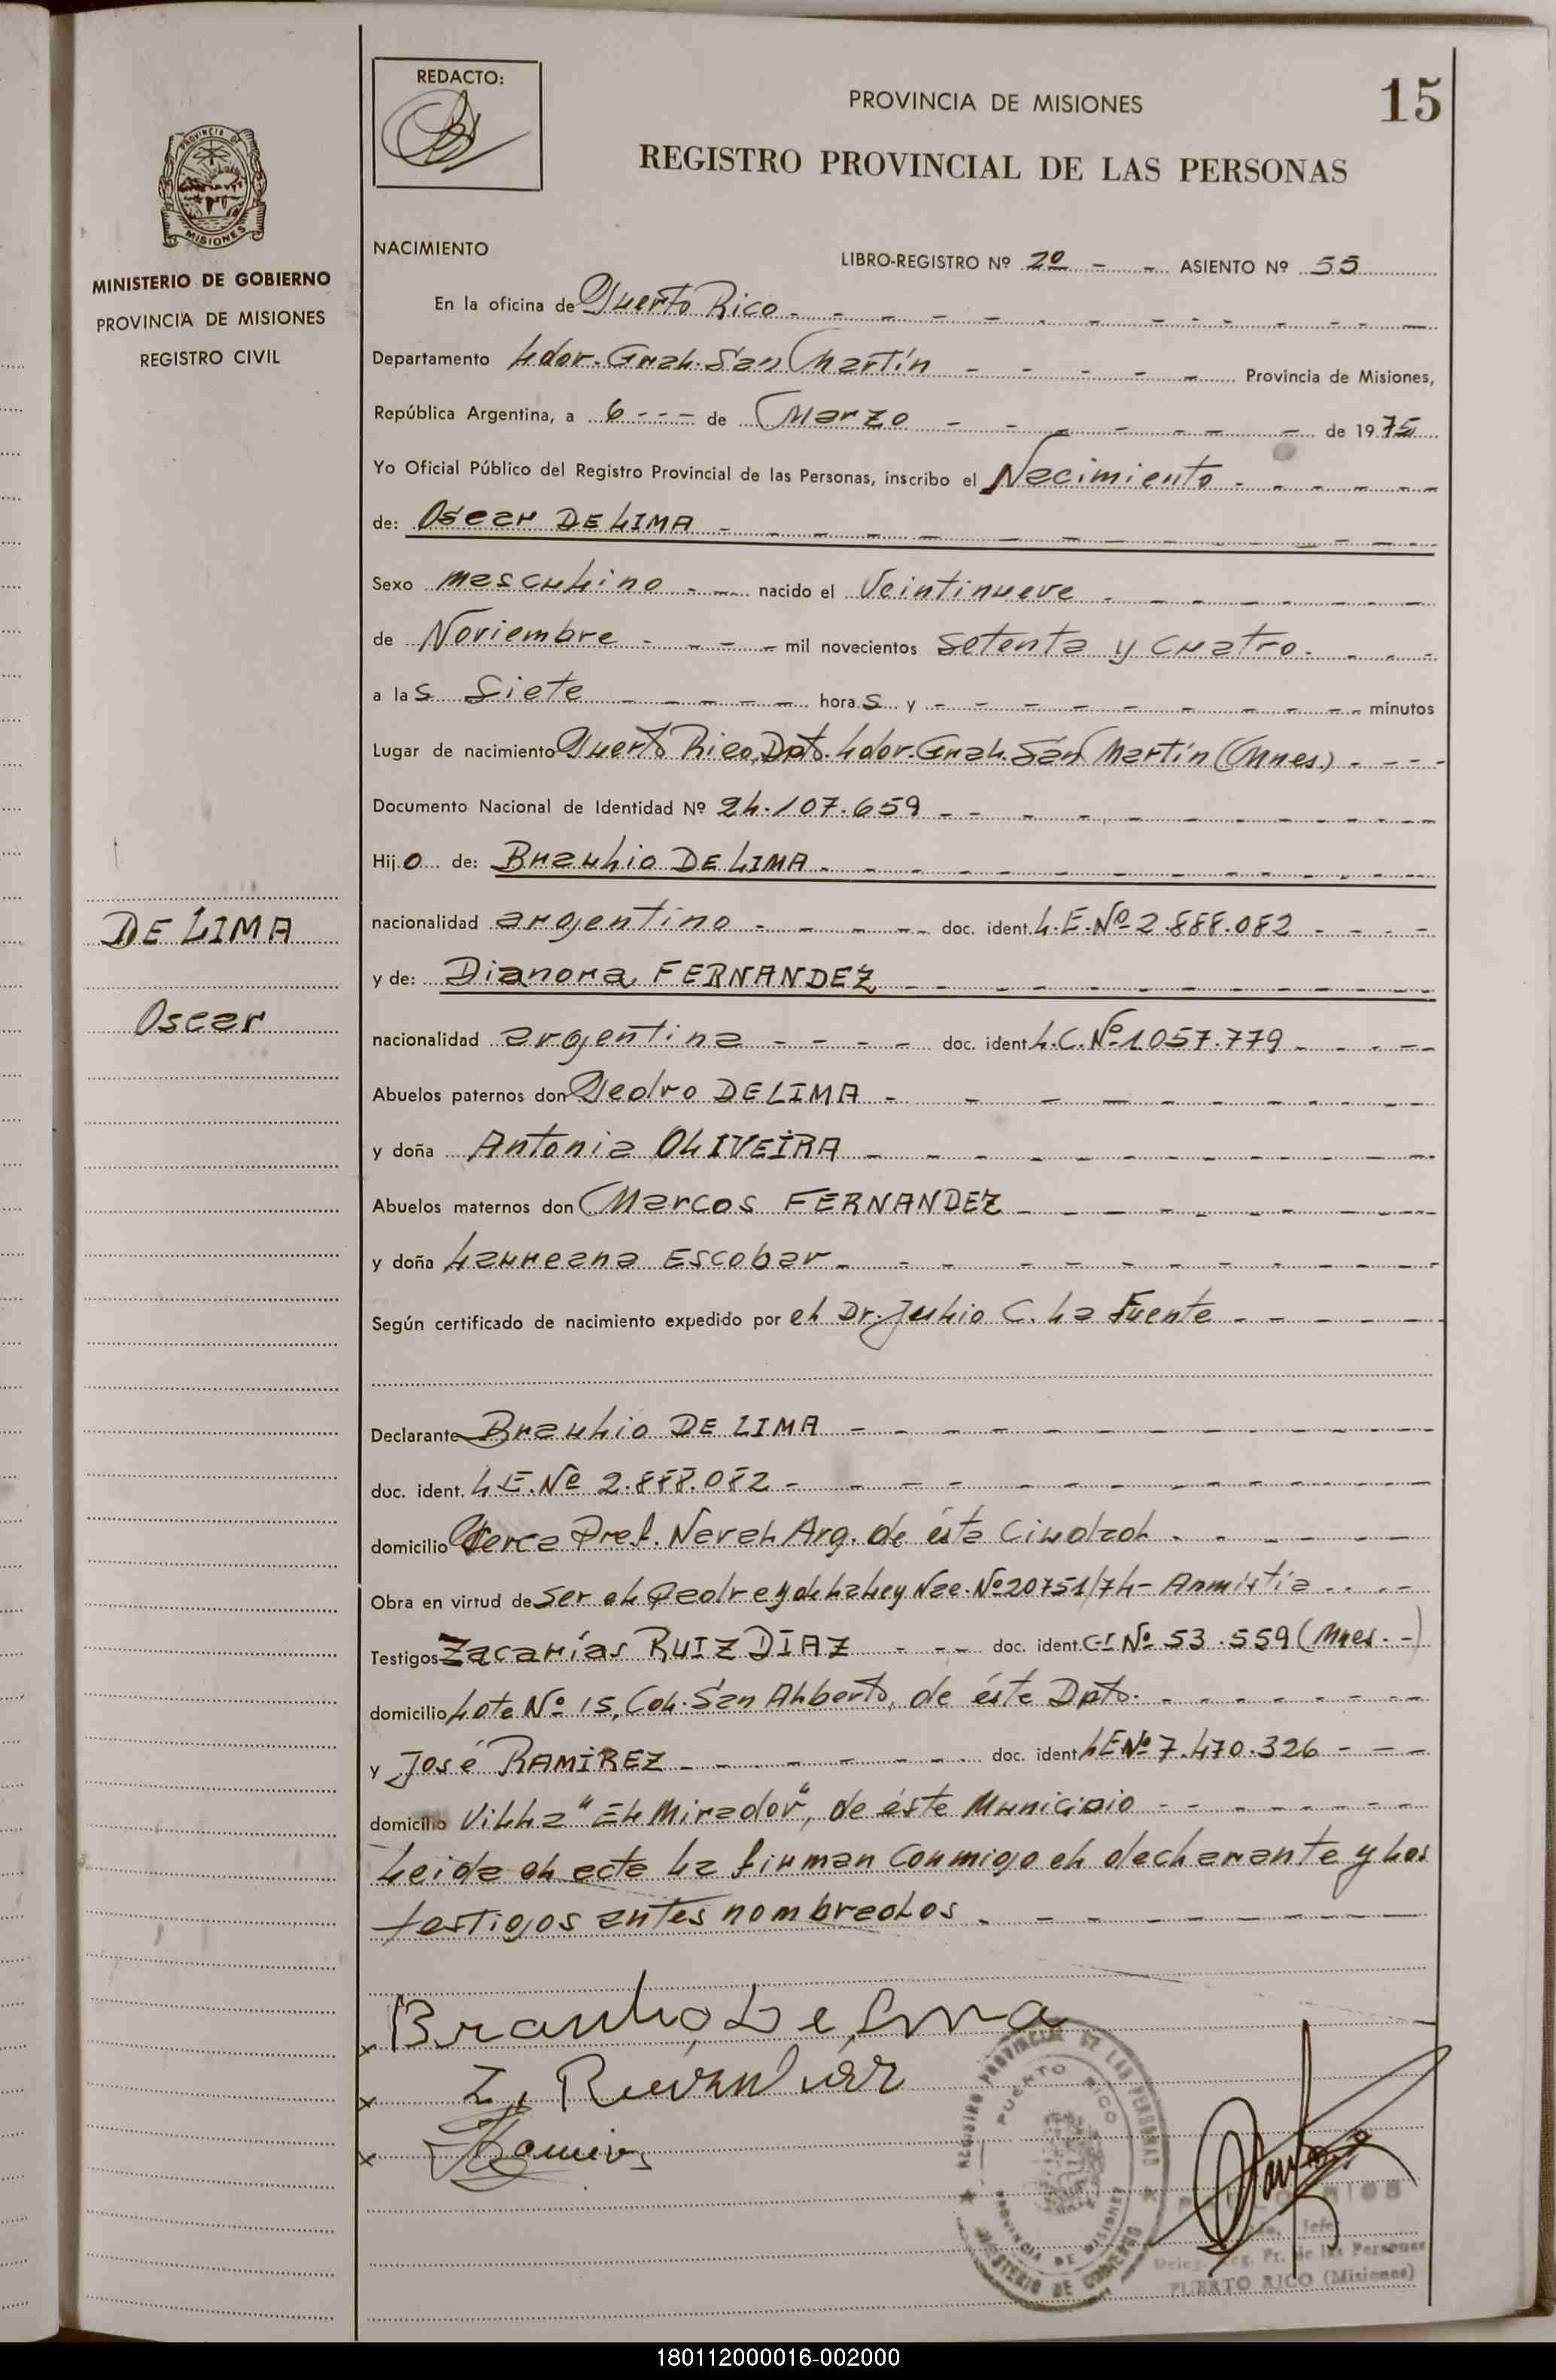 REDACTO:
PROVINCIA DE MISIONES
15
REGISTRO PROVINCIAL DE LAS PERSONAS
PROVINCIA DE
MISIONES
MINISTERIO DE GOBIERNO
PROVINCIA DE MISIONES
REGISTRO CIVIL
NACIMIENTO
LIBRO-REGISTRO Nº 2º - - ASIENTO Nº 55
En la oficina de Puerto Rico
Departamento Ldor. Gral. San Martín - - - - - Provincia de Misiones,
República Argentina, a 6 - - - de Marzo - - - - - - - de 1975
Yo Oficial Público del Registro Provincial de las Personas, inscribo el Nacimiento
de: Oscar DE LIMA
Sexo masculino - - nacido el Veintinueve
de Noviembre - - - - mil novecientos setenta y cuatro
a las Siete - - - - - horas y - - - - - - - - - minutos
Lugar de nacimiento Puerto Rico, Dpto. Ldor. Gral. San Martín (Mnes.)
Documento Nacional de Identidad Nº 24.107.659
Hijo de: Braulio DE LIMA
DE LIMA
nacionalidad argentino - - - - - doc. ident. L.E. Nº 2.888.082
y de: Dianora FERNANDEZ
Oscar
nacionalidad argentina - - - - doc. ident L.C. Nº 1057.779
Abuelos paternos don Pedro DE LIMA
y doña Antonia OLIVEIRA
Abuelos maternos don Marcos FERNANDEZ
y doña Laureana Escobar
Según certificado de nacimiento expedido por el Dr. Julio C. La Fuente
Declarante Braulio DE LIMA
doc. ident. L.E. Nº 2.888.082
domicilio Cerca Pref. Naval Arg. de ésta Ciudad
Obra en virtud de ser el padre y de la Ley Nac. Nº 20751/74 - Anmistia
Testigos Zacarías RUIZ DIAZ - - - doc. ident. C.I. Nº 53.559 (Mnes. -)
domicilio Lote Nº 15, Col. San Alberto, de éste Dpto.
y José RAMIREZ - - - - - - doc. ident L.E. Nº 7.470.326
domicilio Villa "El Mirador", de éste Municipio
Leida el acta la firman conmigo el declarante y los
testigos antes nombrados
x Braulio De Lima
x Z,
x Ramires
REGISTRO PROVINCIAL DE LAS PERSONAS
PUERTO RICO
PROVINCIA DE MISIONES
MINISTERIO DE GOBIERNO
Jefe
Deleg. Reg. Pr. de las Personas
PUERTO RICO (Misiones)
180112000016-002000